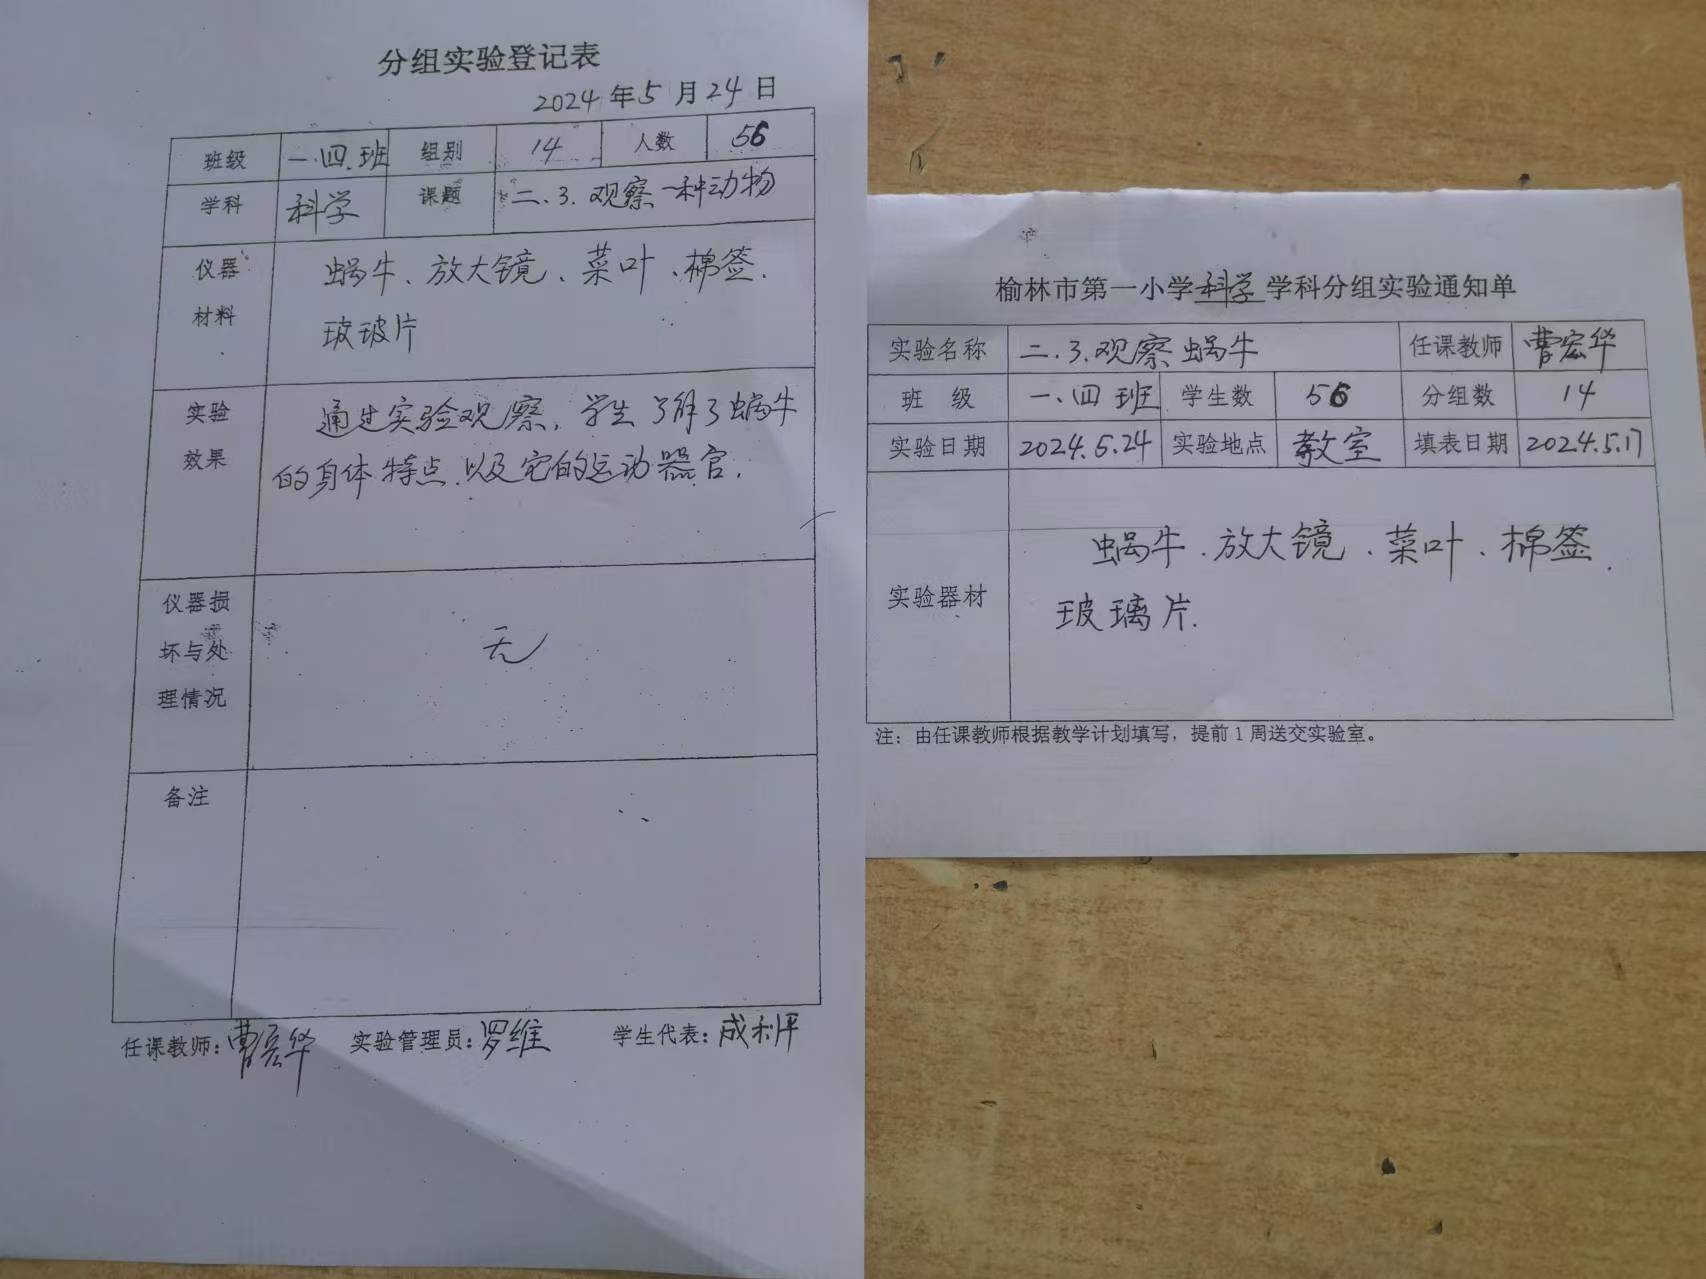 分组实验登记表
2024年5月24日
班级 一.四.班 组别 14 人数 56
学科 科学 课题 二、3.观察一种动物
仪器材料
蜗牛、放大镜、菜叶、棉签.
玻玻片
实验效果
通过实验观察，学生了解了蜗牛
的身体特点.以及它的运动器官.
仪器损坏与处理情况
无
备注
任课教师：曹宏华 实验管理员：罗维 学生代表：成利平
榆林市第一小学科学学科分组实验通知单
实验名称 二.3.观察蜗牛 任课教师 曹宏华
班 级 一.四班 学生数 56 分组数 14
实验日期 2024.5.24 实验地点 教室 填表日期 2024.5.17
实验器材
蜗牛.放大镜、菜叶、棉签.
玻璃片.
注：由任课教师根据教学计划填写，提前1周送交实验室。